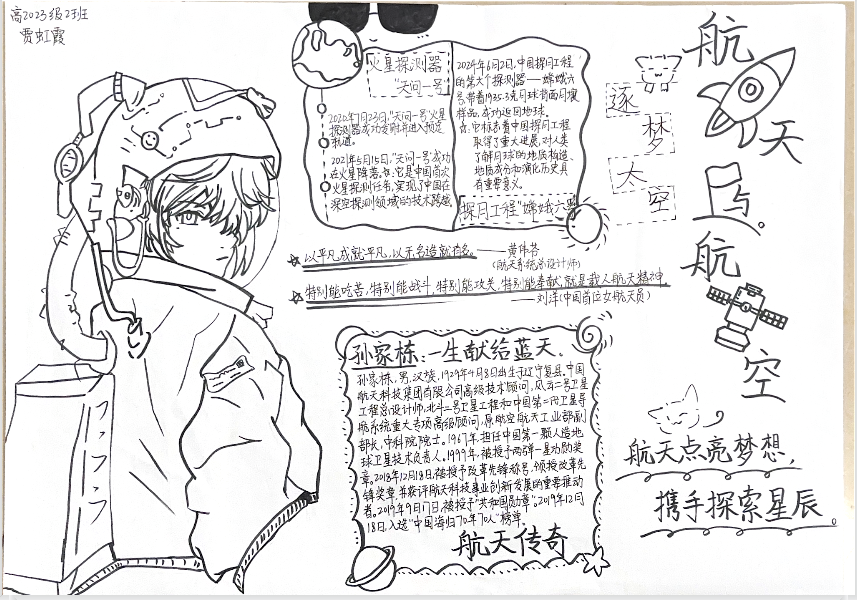 高2023级2班
贾虹霞
火星探测器
"天问一号"
2020年7月23日,"天问一号"火星
探测器成功发射并进入预定
轨道。
2021年5月15日,"天问一号"成功
在火星降落。它是中国首次
火星探测任务,实现了中国在
深空探测领域的技术跨越
2024年6月2日,中国探月工程
的第六个探测器——嫦娥六
号带着1935.3克月球背面月壤
样品,成功返回地球。
它标志着中国探月工程
取得了重大进展,对人类
了解月球的地质构造、
地质成分和演化历史具
有重要意义。
探月工程"嫦娥六号"
逐
梦
太
空
航
天
与
航
空
以平凡成就平凡,以无名造就有名。——黄
(航天系统总设计师)
特别能吃苦,特别能战斗,特别能攻关,特别能奉献,就是载人航天精神。
——刘洋(中国首位女航天员)
孙家栋:一生献给蓝天。
孙家栋,男,汉族,1929年4月8日出生于辽宁复县。中国
航天科技集团有限公司高级技术顾问,风云二号卫星
工程总设计师,北斗二号卫星工程和中国第二代卫星导
航系统重大专项高级顾问,原航空航天工业部副
部长,中科院院士。1967年,担任中国第一颗人造地
球卫星技术负责人。1999年,被授予两弹一星功勋奖
章。2018年12月18日,被授予改革先锋称号,颁授改革先
锋奖章,并获评航天科技事业创新发展的重要推动
者。2019年9月17日,被授予"共和国勋章"。2019年12月
18日,入选"中国海归70年70人"榜单。
航天传奇
航天点亮梦想,
携手探索星辰。